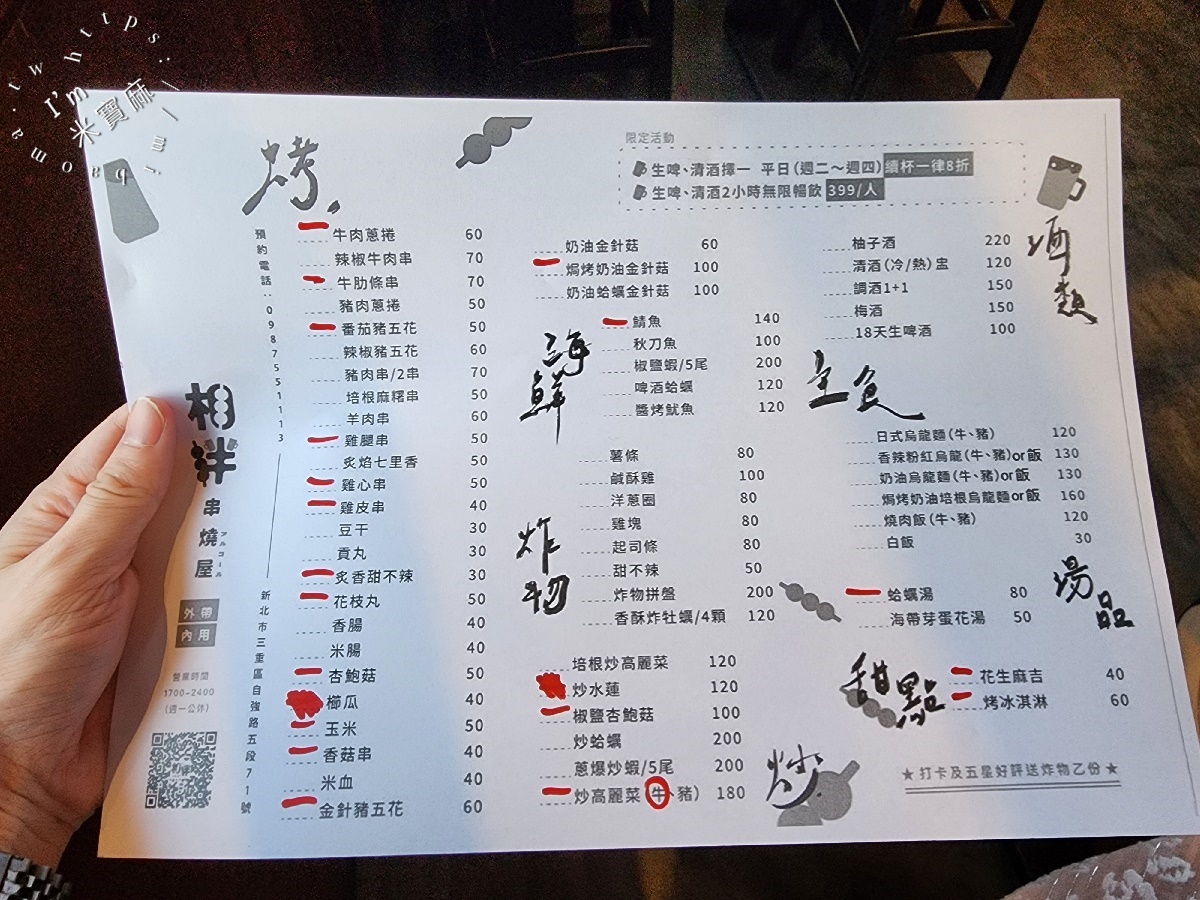 I'm https: mibao ma.tw
米寶麻
烤
預約電話:0987551113
相拌
串燒屋
アルコール
外帶
內用
營業時間
1700-2400
(週一公休)
新北市三重區自強路五段71號
牛肉蔥捲 60
辣椒牛肉串 70
牛肋條串 70
豬肉蔥捲 50
番茄豬五花 50
辣椒豬五花 60
豬肉串/2串 70
培根麻糬串 50
羊肉串 60
雞腿串 50
炙焰七里香 50
雞心串 50
雞皮串 40
豆干 30
貢丸 30
炙香甜不辣 30
花枝丸 50
香腸 40
米腸 40
杏鮑菇 50
櫛瓜 40
玉米 50
香菇串 40
米血 40
金針豬五花 60
限定活動
生啤、清酒擇一 平日(週二～週四)續杯一律8折
生啤、清酒2小時無限暢飲 399/人
奶油金針菇 60
焗烤奶油金針菇 100
奶油蛤蠣金針菇 100
海鮮
鯖魚 140
秋刀魚 100
椒鹽蝦/5尾 200
啤酒蛤蠣 120
醬烤魷魚 120
炸物
薯條 80
鹹酥雞 100
洋蔥圈 80
雞塊 80
起司條 80
甜不辣 50
炸物拼盤 200
香酥炸牡蠣/4顆 120
培根炒高麗菜 120
炒水蓮 120
椒鹽杏鮑菇 100
炒蛤蠣 200
蔥爆炒蝦/5尾 200
炒高麗菜(牛、豬) 180
炒
酒類
柚子酒 220
清酒(冷/熱)盅 120
調酒1+1 150
梅酒 150
18天生啤酒 100
主食
日式烏龍麵(牛、豬) 120
香辣粉紅烏龍(牛、豬)or飯 130
奶油烏龍麵(牛、豬)or飯 130
焗烤奶油培根烏龍麵or飯 160
燒肉飯(牛、豬) 120
白飯 30
湯品
蛤蠣湯 80
海帶芽蛋花湯 50
甜點
花生麻吉 40
烤冰淇淋 60
★打卡及五星好評送炸物乙份★